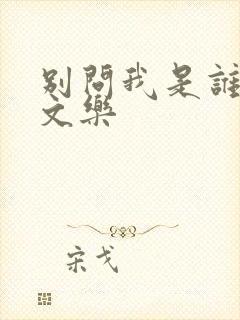 別問我是誰
文樂
宋戈